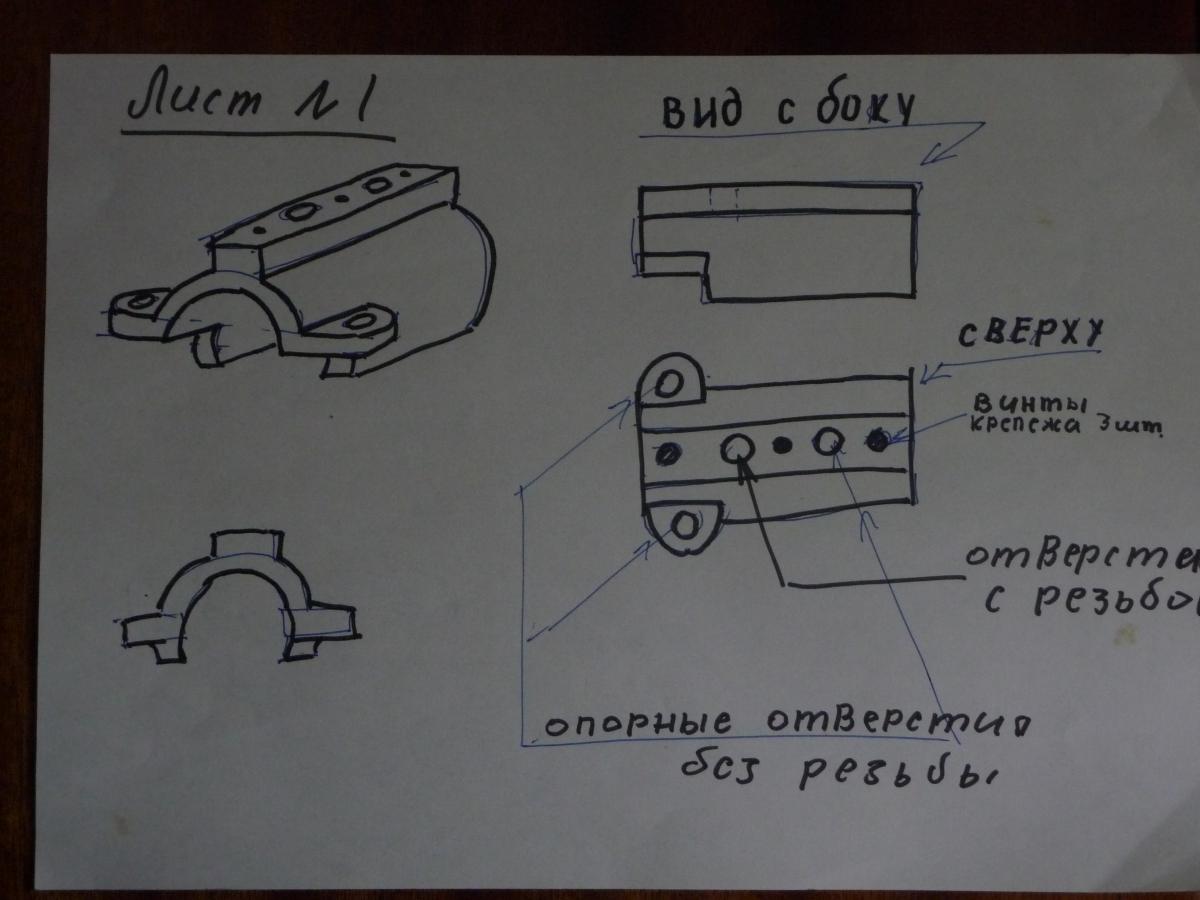 Лист №1
вид с боку
сВЕРХУ
винты
крепежа 3 шт.
отверсте
с резьбо
опорные отверстия
без резьбы